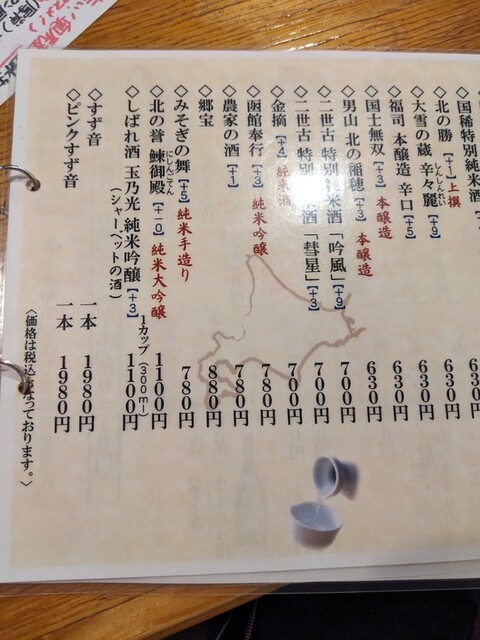 ◇国稀特別純米酒
◇北の勝【+1】上撰 630円
◇大雪の蔵 辛々麗【+9】 630円
しんしんれい
◇福司 本醸造 辛口【+5】 630円
◇国士無双【+3】本醸造 630円
◇男山 北の稲穂【+3】本醸造 630円
◇二世古 特別純米酒「吟風」【+9】 700円
◇二世古 特別 酒「彗星」【+3】 700円
◇金摘【+4】純米酒 700円
◇函館奉行【+3】純米吟醸 780円
◇農家の酒【+1】 780円
◇郷宝 880円
◇みそぎの舞【+5】純米手造り 780円
◇北の誉 鰊御殿【+-0】純米大吟醸 1100円
にしんごてん
1カップ(300ml)
◇しばれ酒 玉乃光 純米吟醸【+3】 1100円
(シャーベットの酒)
◇すず音 一本 1980円
◇ピンクすず音 一本 1980円
〈価格は税込になっております。〉